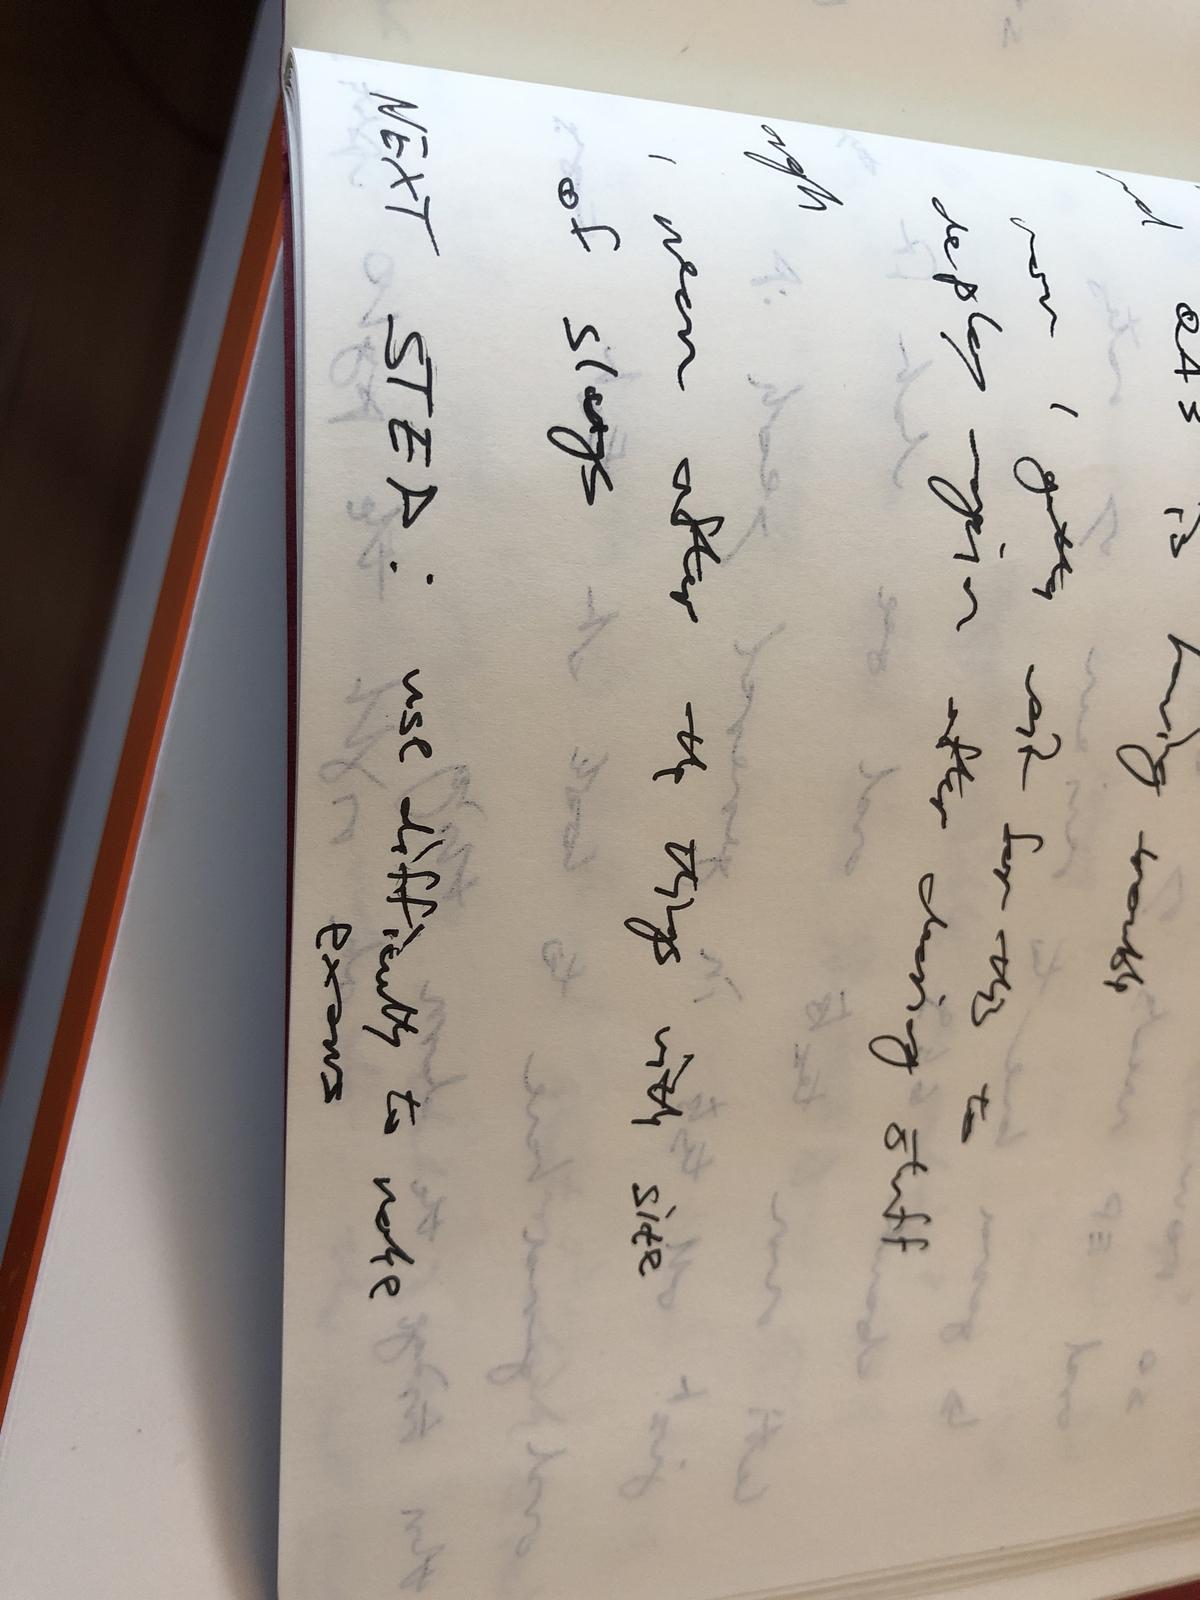 and QA3 is having trouble
now I gotta wait for this to
deploy again after clearing stuff
argh
i mean after the things with size
of slugs
NEXT STEP: use difficulty to make
exams